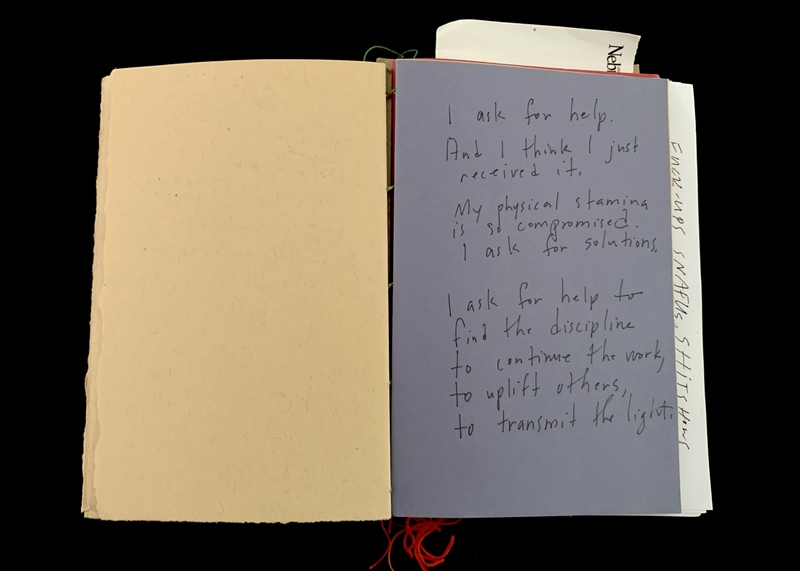 I ask for help.
And I think I just
received it.
My physical stamina
is so compromised.
I ask for solutions.
I ask for help to
find the discipline
to continue the work,
to uplift others,
to transmit the light.
FUCK-UPS SNAFUs, SHITSHOWS